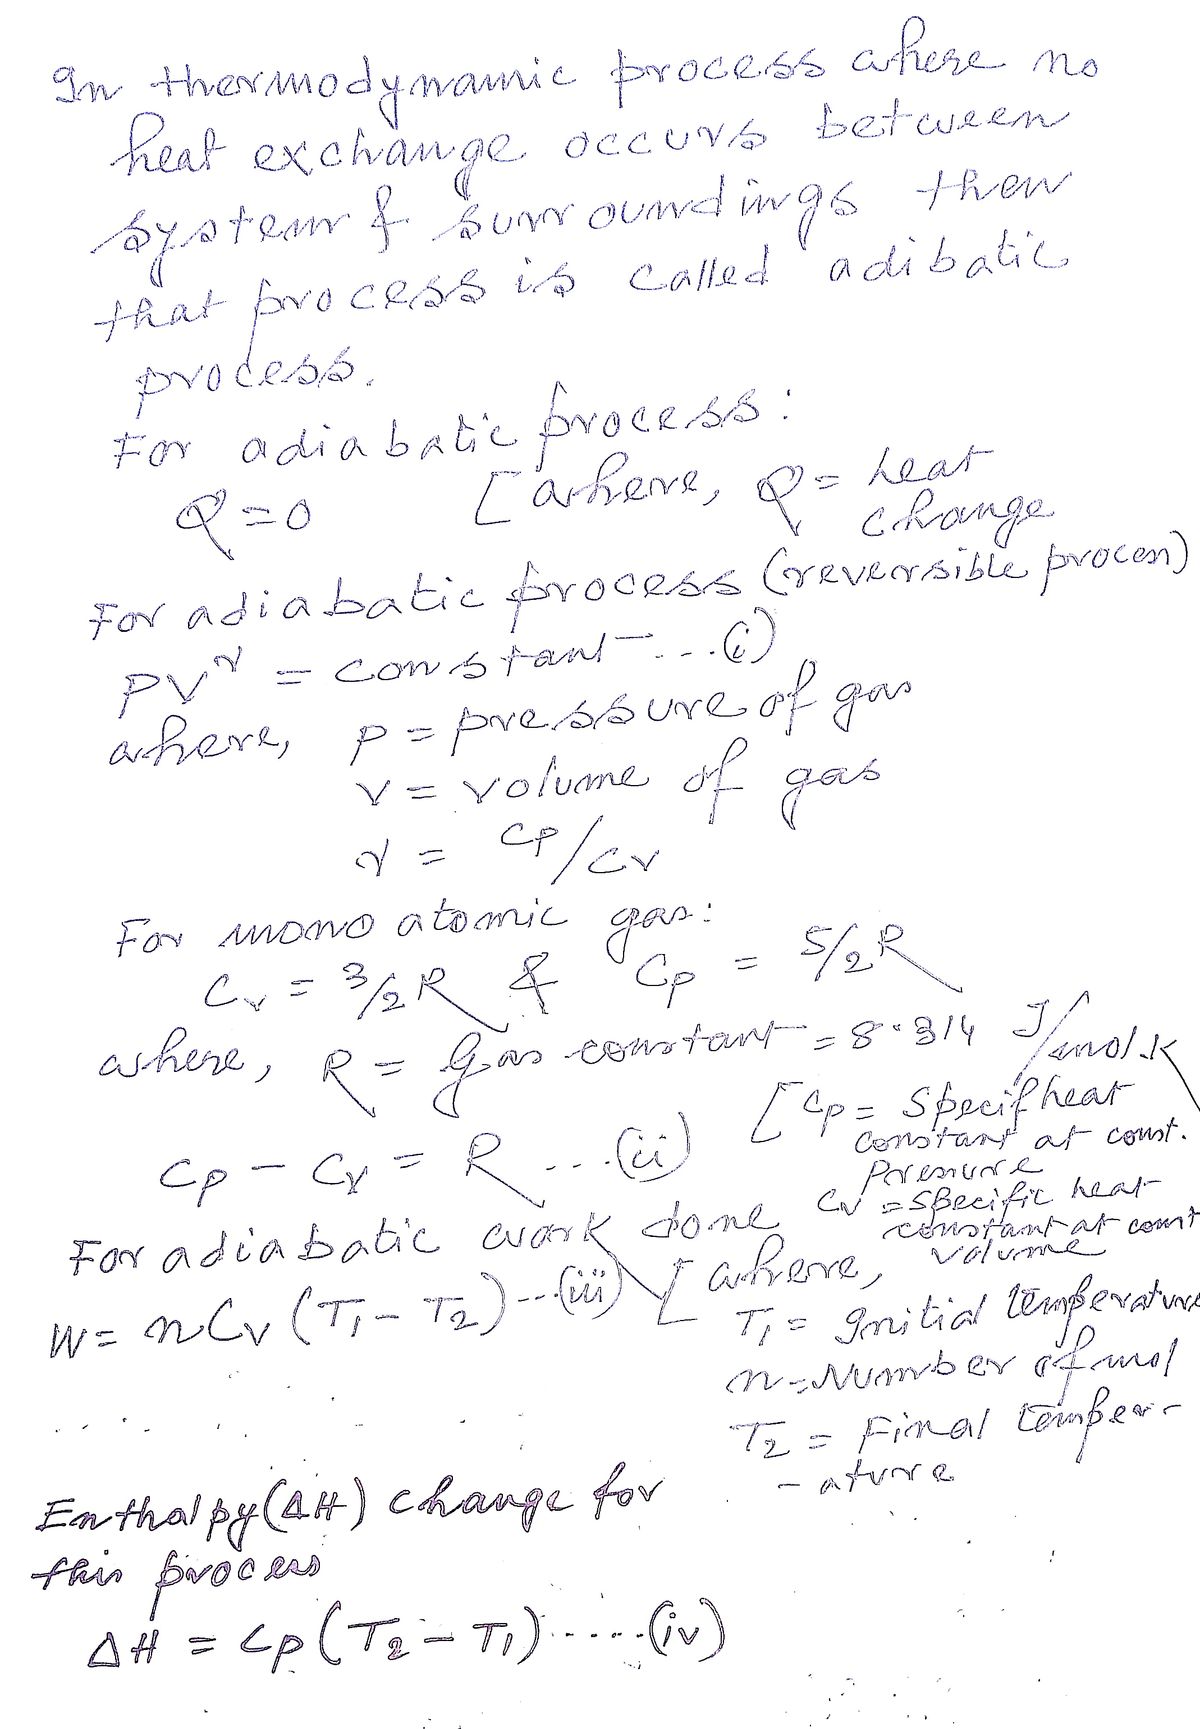 In thermodynamic process where no
heat exchange occurs between
system & surroundings then
that process is called adibatic
process.
For adiabatic process:
Q=0 [where, Q= heat
change
For adiabatic process (reversible process)
PV^γ = constant ...(i)
where, P = pressure of gas
V = volume of gas
γ = Cp/Cv
For mono atomic gas:
Cv = 3/2 R & Cp = 5/2 R
where, R = Gas constant = 8.314 J/mol.K
[Cp = Specif heat
constant at const.
Pressure
Cp - Cv = R ...(ii)
Cv = Specific heat
constant at const
volume
For adiabatic work done
W = nCv (T1 - T2) ...(iii) [where,
T1 = Initial temperature
n = Number of mol
T2 = Final temper-
-ature
Enthalpy (ΔH) change for
this process
ΔH = Cp (T2 - T1) .....(iv)